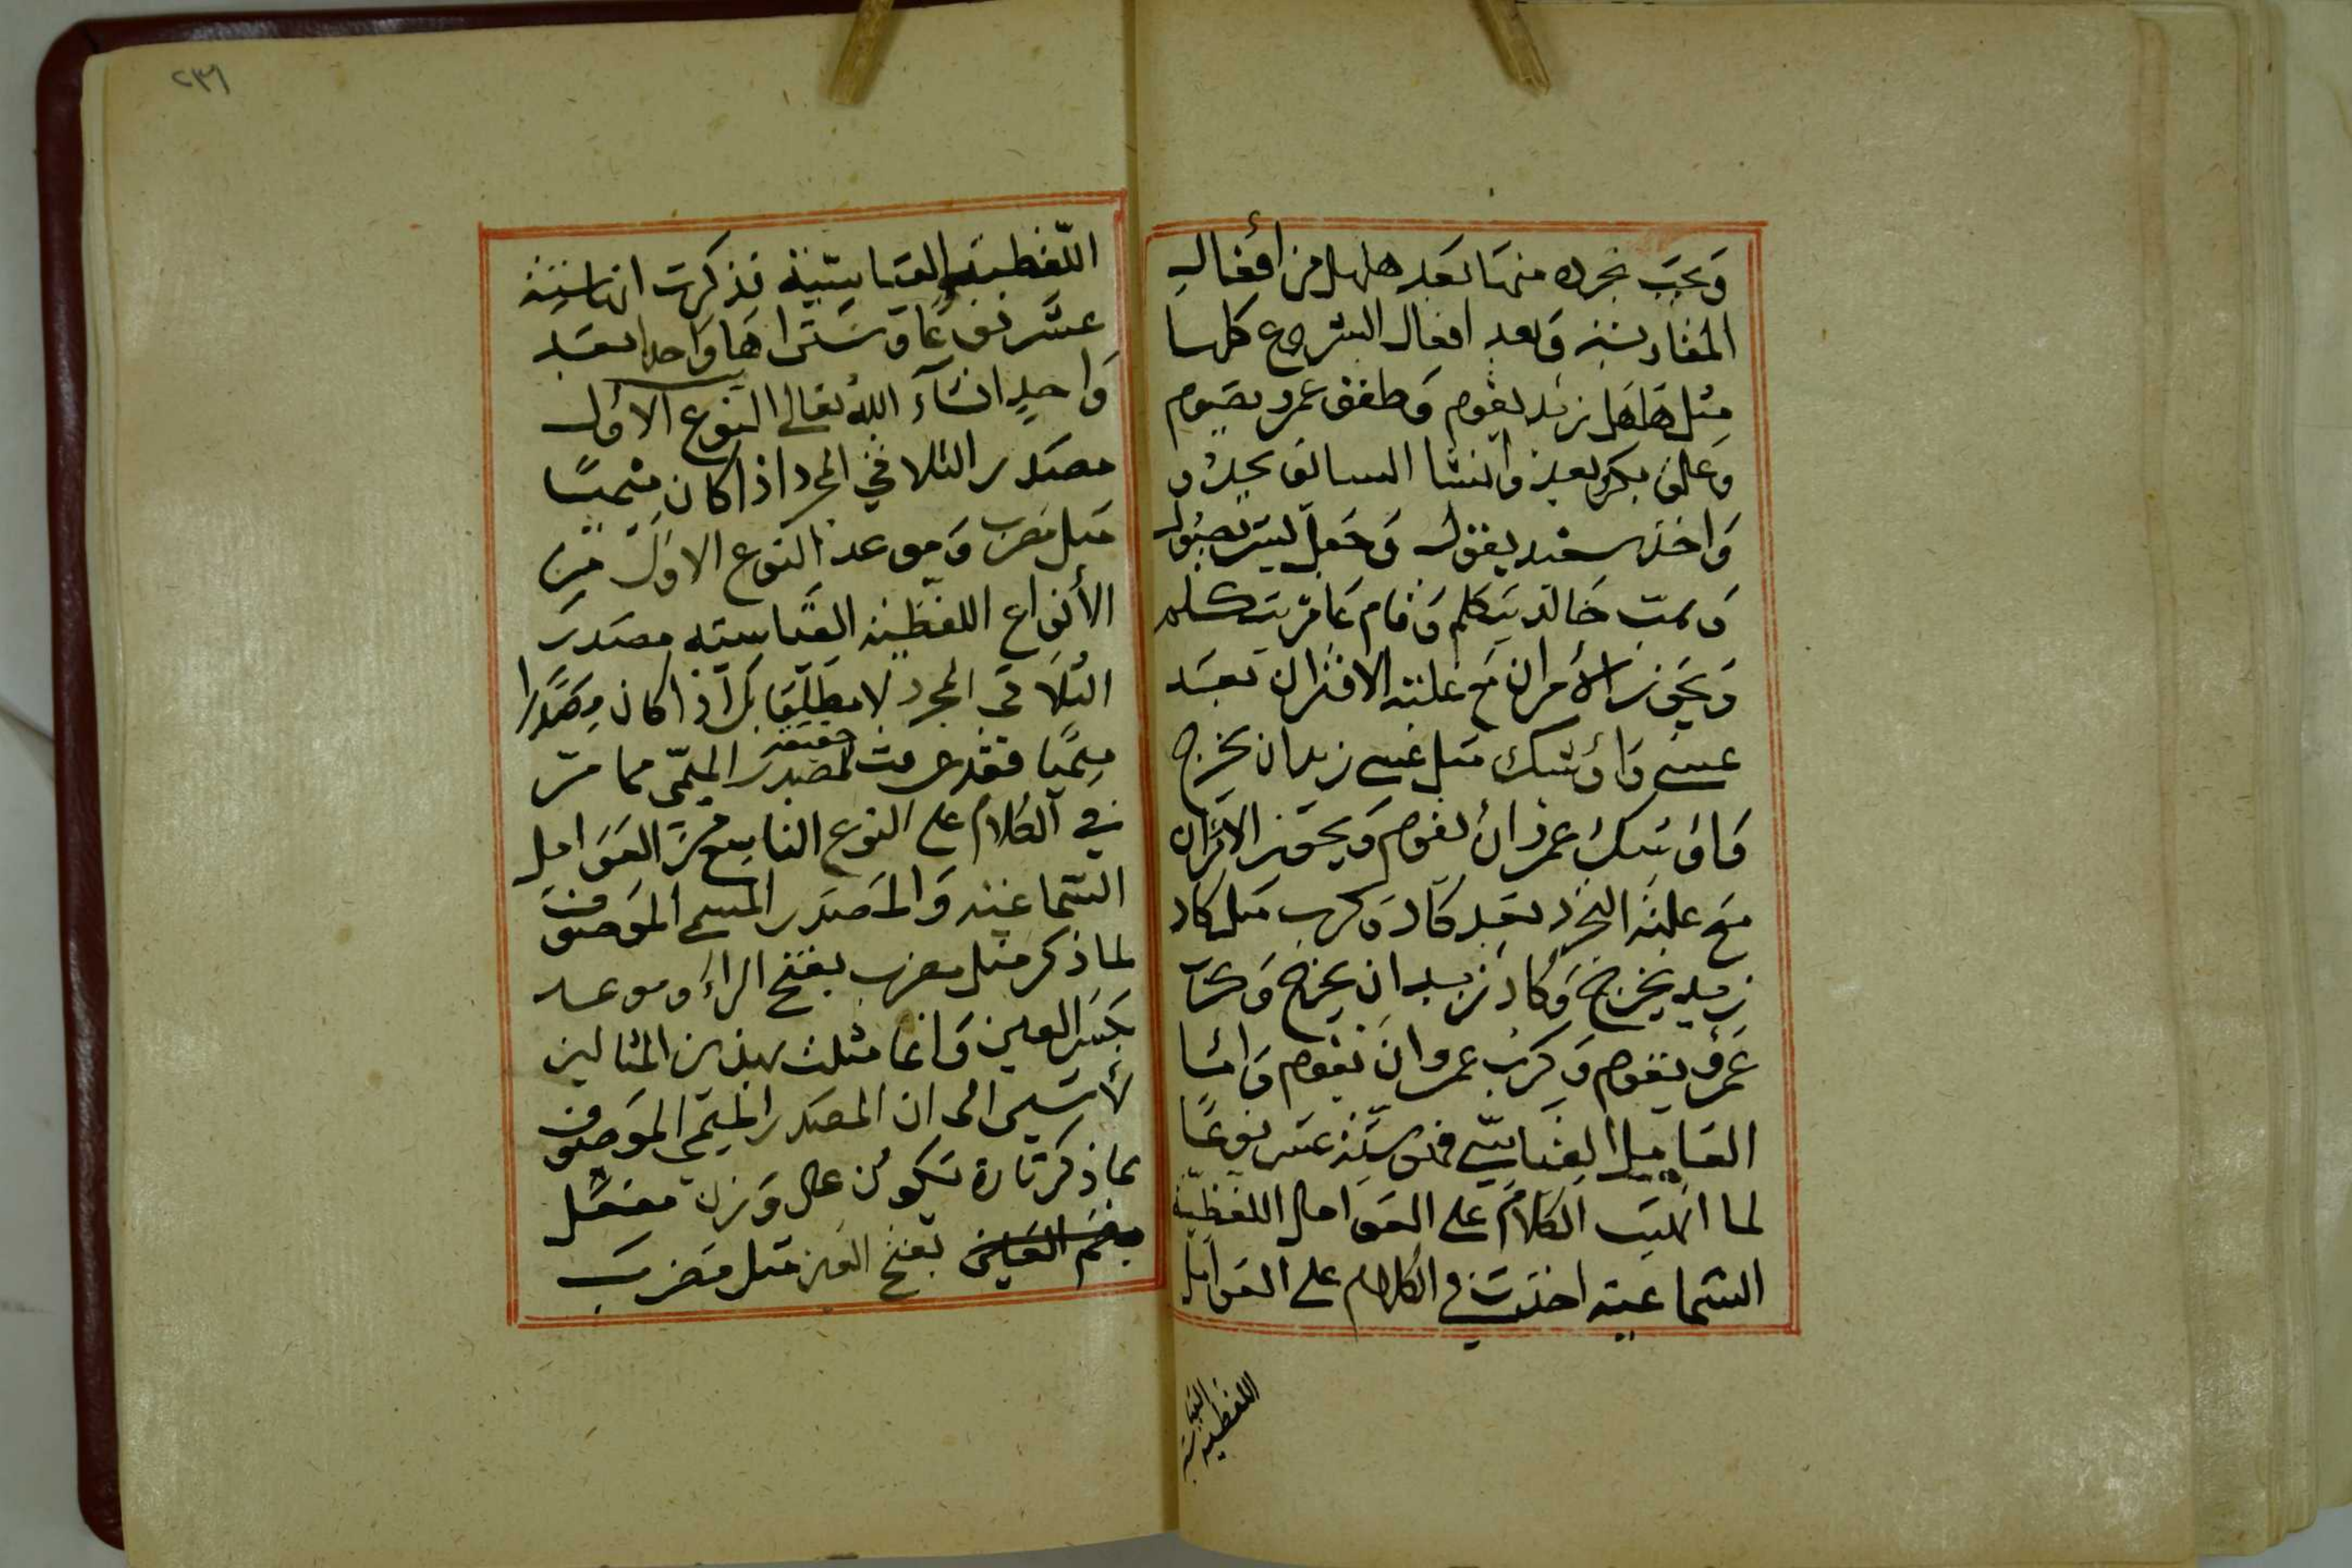 ويجب تجرده منها بعد هلهل من أفعال
المقاربة وبعد افعال الشروع كلها
مثل هلهل زيد يقوم وطفق عمرو يصوم
وعلق بكر يعد وانشا السائق يحدو
واخذ سعيد يقول وجعل
وهب خالد يتكلم وقام عامر يتكلم
ويجوز الأمران مع غلبة الاقتران بعد
عسى واوشك مثل عسى زيد ان يخرج
واوشك عمرو ان يقوم ويجوز الامران
مع غلبة التجرد بعد كاد وكرب مثل كاد
زيد يخرج وكاد زيد ان يخرج وكرب
عمرو يقوم وكرب عمرو ان يقوم واما
العامل القياسي فهو ستة عشر نوعا
لما انهيت الكلام على العوامل اللفظية
السماعية اخذت في الكلام على العوامل
اللفظية القياسية
٢٣٦
اللفظية القياسية فذكرت انها ستة
عشر نوعا وستراها واحدا بعد
واحد انشآء الله تعالى النوع الاول
مصدر الثلاثي المجرد اذا كان ميميا
مثل مضرب وموعد النوع الاول من
الأنواع اللفظية القياسيه مصدر
الثلاثي المجرد لا مطلقا بل اذا كان مصدرا
ميميا فقد عرفت حقيقة المصدر الميمي مما مر
في الكلام على النوع التاسع من العوامل
السماعية والمصدر الميمي الموصوف
بما ذكر مثل مضرب بفتح الراء وموعد
بكسر العين وانما مثلت بهذين المثالين
لأشير الى ان المصدر الميمي الموصوف
بما ذكر تارة يكون على وزن مفعل
بضم العين بفتح العين مثل مضرب